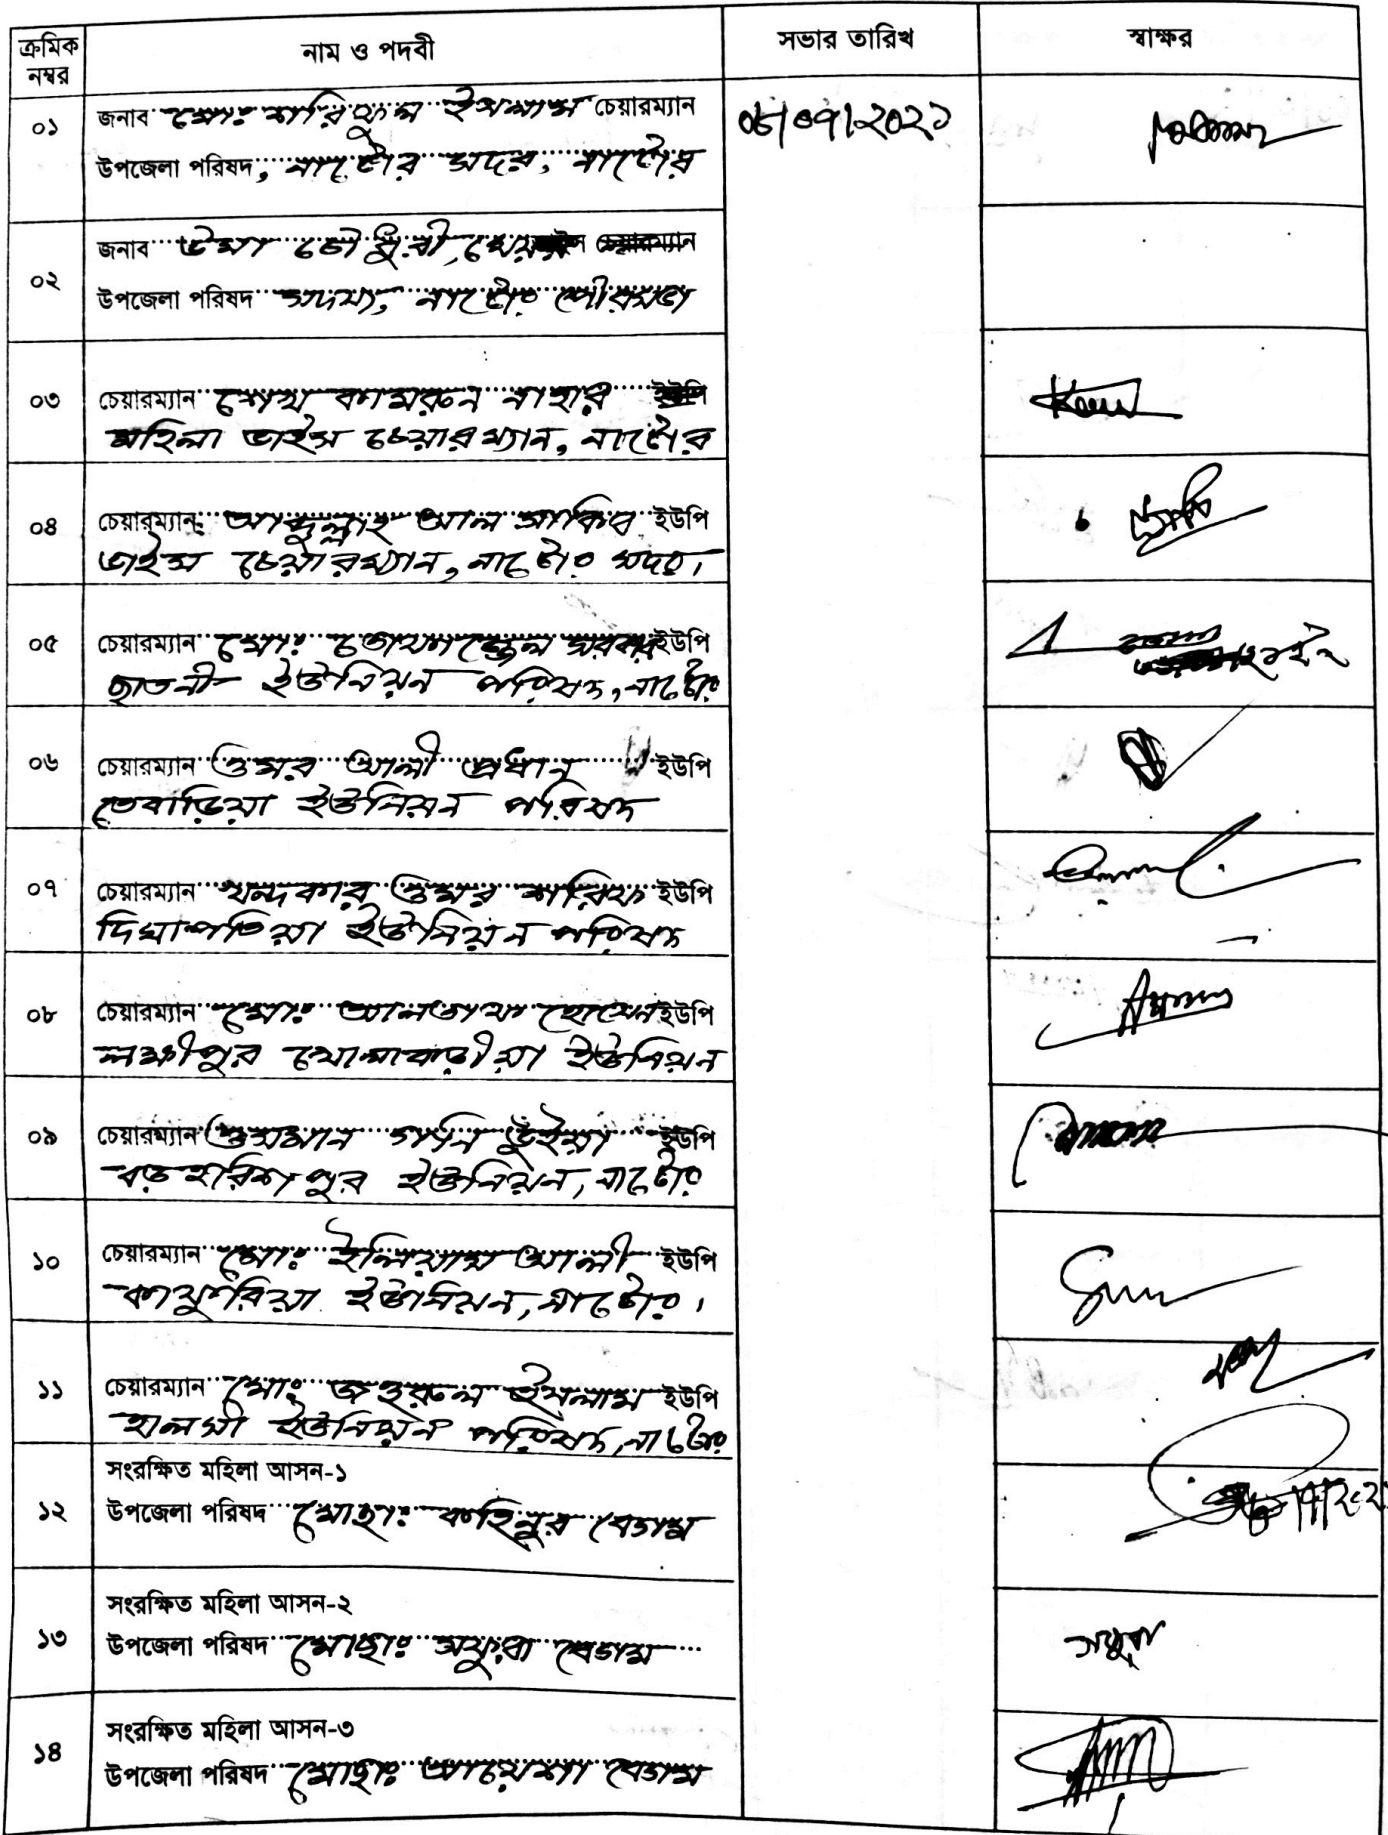 ক্রমিক নম্বর	নাম ও পদবী	সভার তারিখ	স্বাক্ষর
০১	জনাব মোঃ শরিফুল ইসলাম চেয়ারম্যান	০৮/০৭/২০২১
উপজেলা পরিষদ, নাটোর সদর, নাটোর
০২	জনাব উমা চৌধুরী, মেয়র
উপজেলা পরিষদ সদস্য, নাটোর পৌরসভা
০৩	চেয়ারম্যান শেখ কামরুন নাহার ইউপি
মহিলা ভাইস চেয়ারম্যান, নাটোর
০৪	চেয়ারম্যান আব্দুল্লাহ আল সাকিব ইউপি
ভাইস চেয়ারম্যান, নাটোর সদর।
০৫	চেয়ারম্যান মোঃ তোফাজ্জেল সরকার ইউপি
ছাতনী ইউনিয়ন পরিষদ, নাটোর
০৬	চেয়ারম্যান ওমর আলী প্রধান ইউপি
তেবাড়িয়া ইউনিয়ন পরিষদ
০৭	চেয়ারম্যান খন্দকার ওমর শরিফ ইউপি
দিঘাপতিয়া ইউনিয়ন পরিষদ
০৮	চেয়ারম্যান মোঃ আলতাফ হোসেন ইউপি
লক্ষীপুর খোলাবাড়ীয়া ইউনিয়ন
০৯	চেয়ারম্যান ওসমান গনি ভুঁইয়া ইউপি
বড়হরিশপুর ইউনিয়ন, নাটোর
১০	চেয়ারম্যান মোঃ ইলিয়াস আলী ইউপি
কাফুরিয়া ইউনিয়ন, নাটোর।
১১	চেয়ারম্যান মোঃ জহুরুল ইসলাম ইউপি
হালসা ইউনিয়ন পরিষদ, নাটোর
সংরক্ষিত মহিলা আসন-১
১২	উপজেলা পরিষদ মোছাঃ কহিনুর বেগম
সংরক্ষিত মহিলা আসন-২
১৩	উপজেলা পরিষদ মোছাঃ সফুরা বেগম	সফুরা
সংরক্ষিত মহিলা আসন-৩
১৪	উপজেলা পরিষদ মোছাঃ আয়েশা বেগম